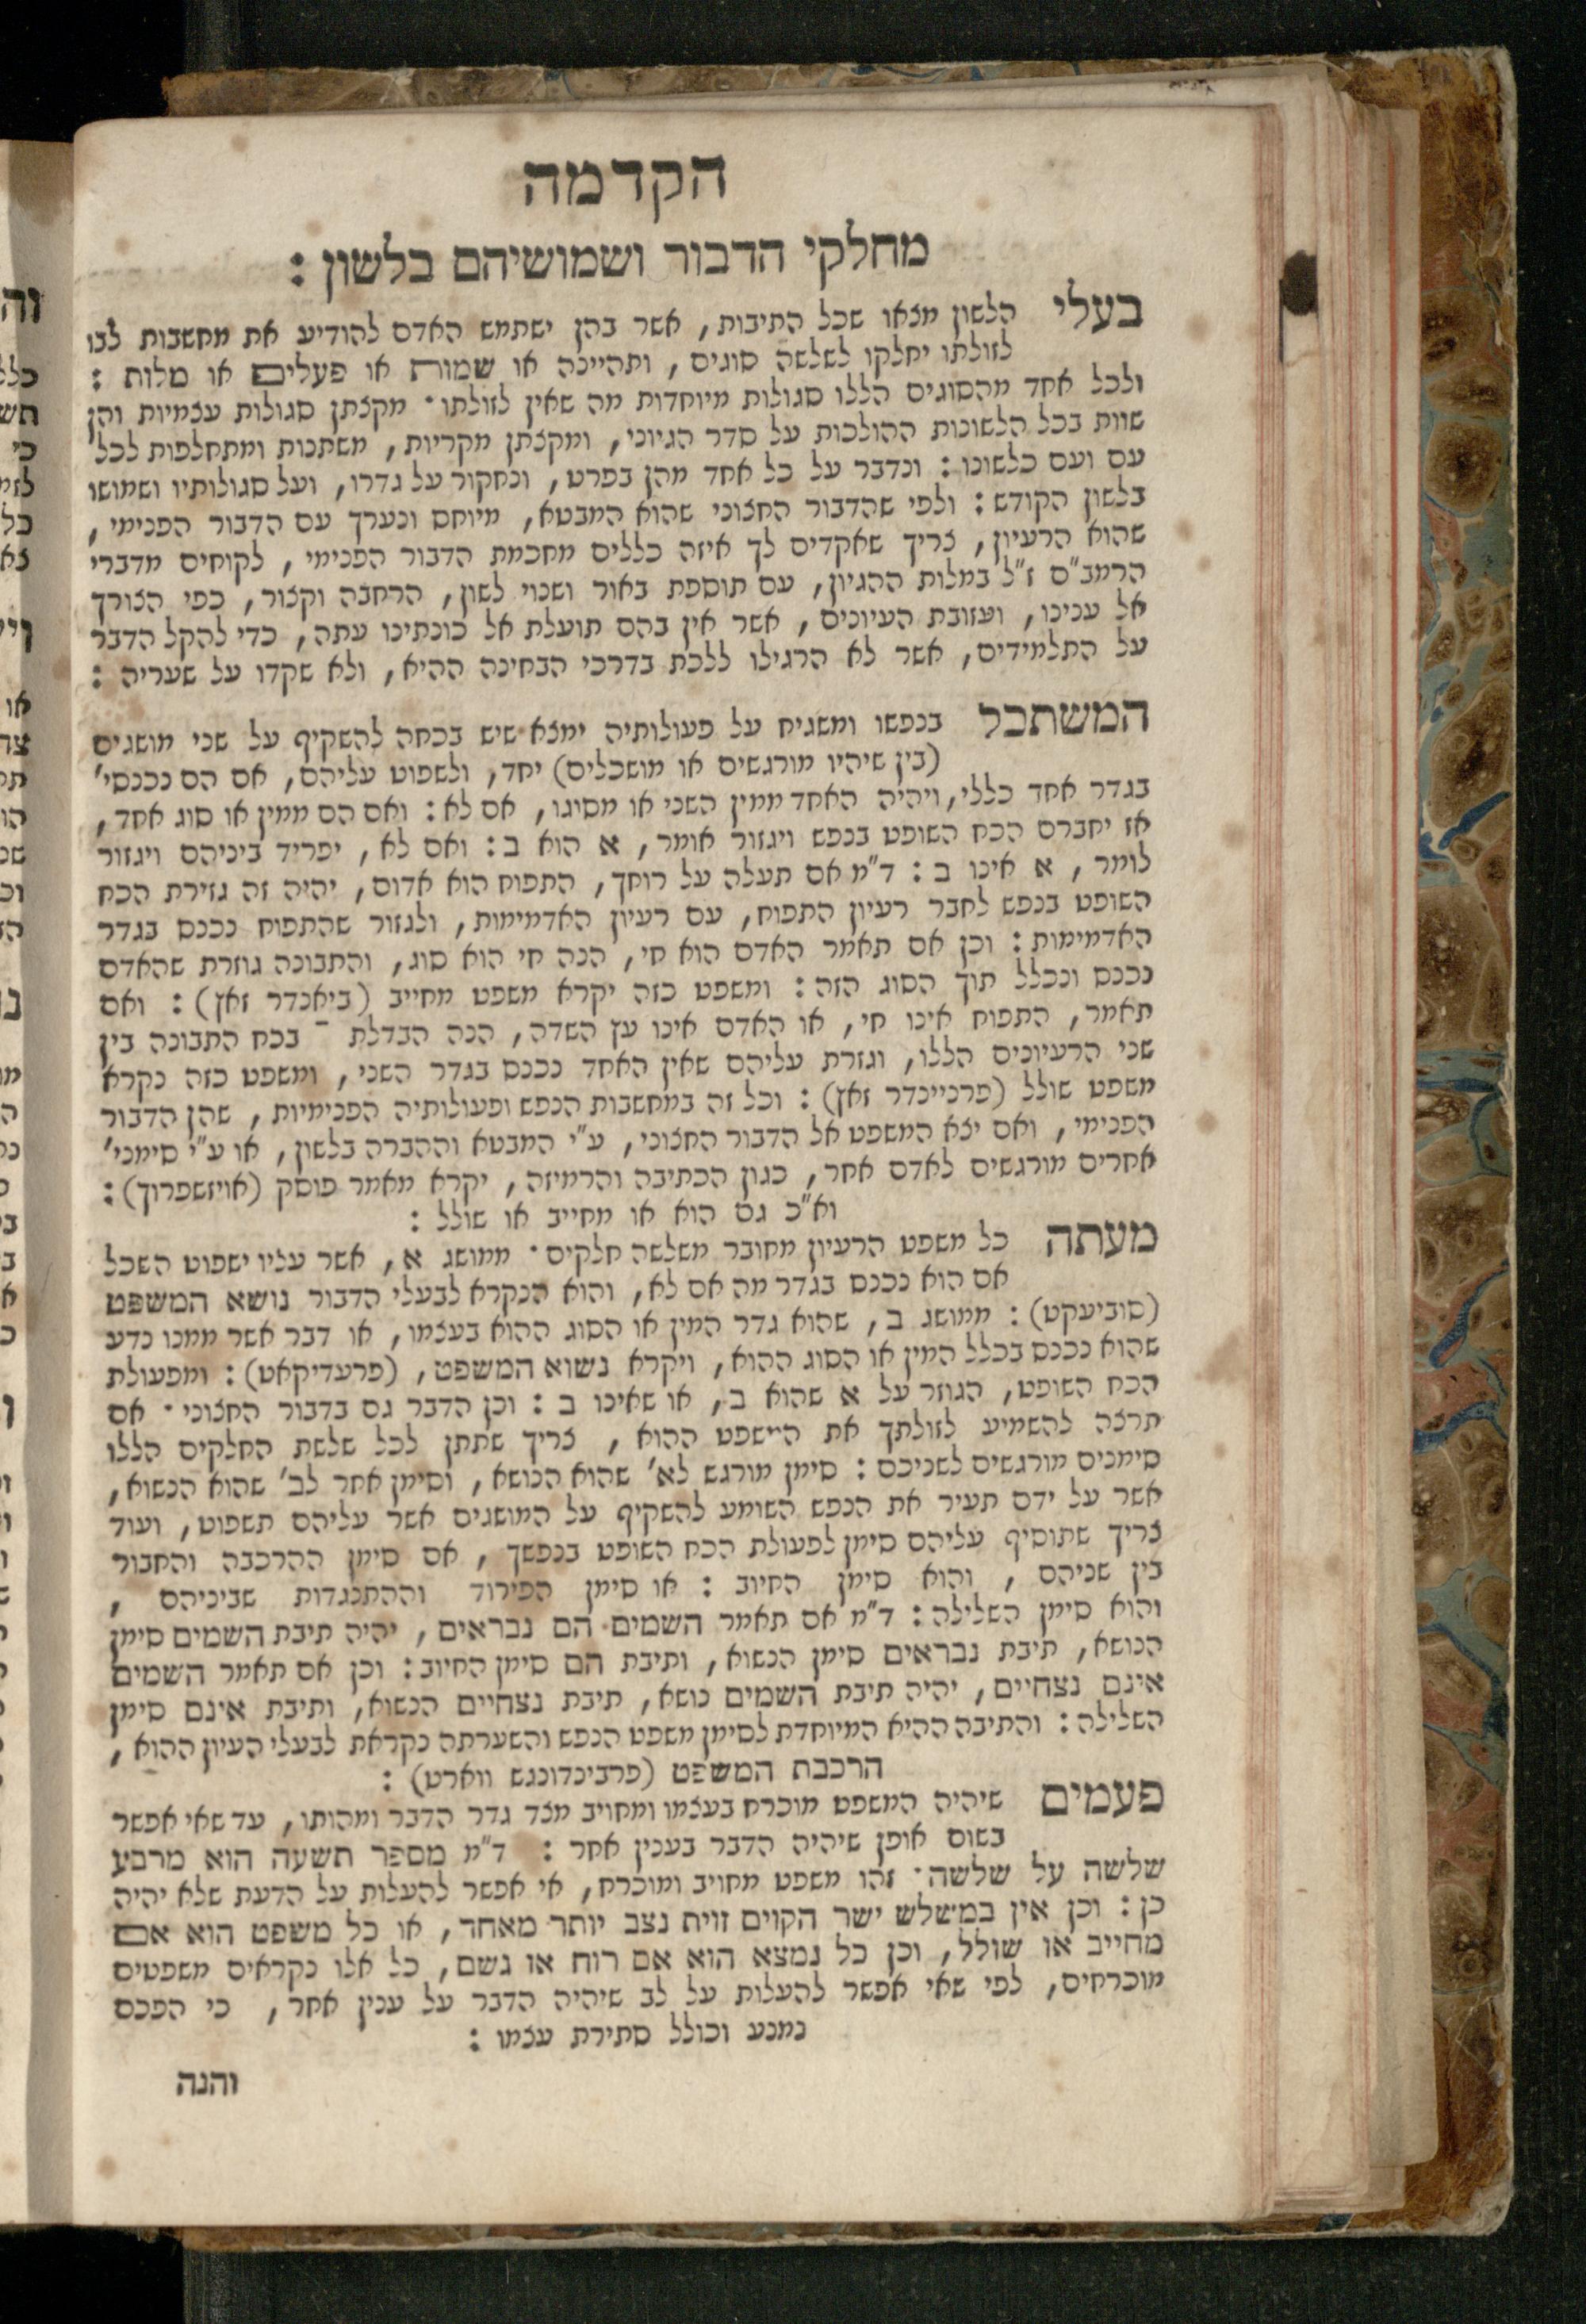 הקדמה
מחלקי הדבור ושמושיהם בלשון :
בעלי הלשון מצאו שכל התיבות, אשר בהן ישתמש האדם להודיע את מחשבות לבו
לזולתו יחלקו לשלשה סוגים, ותהיינה או שמות או פעלים או מלות :
ולכל אחד מהסוגים הללו סגולות מיוחדות מה שאין לזולתו· מקצתן סגולות עצמיות והן
שוות בכל הלשונות ההולכות על סדר הגיוני, ומקצתן מקריות, משתנות ומתחלפות לכל
עם ועם כלשונו : ונדבר על כל אחד מהן בפרט, ונחקור על גדרו, ועל סגולותיו ושמושו
בלשון הקודש : ולפי שהדבור החצוני שהוא המבטא, מיוחס ונערך עם הדבור הפנימי,
שהוא הרעיון, צריך שאקדים לך איזה כללים מחכמת הדבור הפנימי, לקוחים מדברי
הרמב"ם ז"ל במלות ההגיון, עם תוספת באור ושנוי לשון, הרחבה וקצור, כפי הצורך
אל ענינו, ועזובת העיונים, אשר אין בהם תועלת אל כונתינו עתה, כדי להקל הדבר
על התלמידים, אשר לא הרגילו ללכת בדרכי הבחינה ההיא, ולא שקדו על שעריה :
המשתכל בנפשו ומשגיח על פעולותיה ימצא שיש בכחה להשקיף על שני מושגים
(בין שיהיו מורגשים או מושכלים) יחד, ולשפוט עליהם, אם הם נכנסי'
בגדר אחד כללי, ויהיה האחד ממין השני או מסוגו, אם לא : ואם הם ממין או סוג אחד,
אז יחברם הכח השופט בנפש ויגזור אומר, א הוא ב : ואם לא, יפריד ביניהם ויגזור
לומר, א אינו ב : ד"מ אם תעלה על רוחך, התפוח הוא אדום, יהיה זה גזירת הכח
השופט בנפש לחבר רעיון התפוח, עם רעיון האדמימות, ולגזור שהתפוח נכנס בגדר
האדמימות : וכן אם תאמר האדם הוא חי, הנה חי הוא סוג, והתבונה גוזרת שהאדם
נכנס ונכלל תוך הסוג הזה : ומשפט כזה יקרא משפט מחייב (ביאנדר זאן) : ואם
תאמר, התפוח אינו חי, או האדם אינו עץ השדה, הנה הבדלת ־ בכח התבונה בין
שני הרעיונים הללו, וגזרת עליהם שאין האחד נכנס בגדר השני, ומשפט כזה נקרא
משפט שולל (פרניינדר זאן) : וכל זה במחשבות הנפש ופעולותיה הפנימיות, שהן הדבור
הפנימי, ואם יצא המשפט אל הדבור החצוני, ע"י המבטא וההברה בלשון, או ע"י סימני'
אחרים מורגשים לאדם אחר, כגון הכתיבה והרמיזה, יקרא מאמר פוסק (אויזשפרוך) :
וא"כ גם הוא או מחייב או שולל :
מעתה כל משפט הרעיון מחובר משלשה חלקים· ממושג א, אשר עליו ישפוט השכל
אם הוא נכנס בגדר מה אם לא, והוא הנקרא לבעלי הדבור נושא המשפט
(סוביעקט) : ממושג ב, שהוא גדר המין או הסוג ההוא בעצמו, או דבר אשר ממנו נדע
שהוא נכנס בכלל המין או הסוג ההוא, ויקרא נשוא המשפט, (פרעדיקאט) : ומפעולת
הכח השופט, הגוזר על א שהוא ב, או שאינו ב : וכן הדבר גם בדבור החצוני· אם
תרצה להשמיע לזולתך את המשפט ההוא, צריך שתתן לכל שלשת החלקים הללו
סימנים מורגשים לשניכם : סימן מורגש לא' שהוא הנושא, וסימן אחר לב' שהוא הנשוא,
אשר על ידם תעיר את הנפש השומע להשקיף על המושגים אשר עליהם תשפוט, ועוד
צריך שתוסיף עליהם סימן לפעולת הכח השופט בנפשך, אם סימן ההרכבה והחבור
בין שניהם, והוא סימן החיוב : או סימן הפירוד וההתנגדות שביניהם,
והוא סימן השלילה : ד"מ אם תאמר השמים הם נבראים, יהיה תיבת השמים סימן
הנושא, תיבת נבראים סימן הנשוא, ותיבת הם סימן החיוב : וכן אם תאמר השמים
אינם נצחיים, יהיה תיבת השמים נושא, תיבת נצחיים הנשוא, ותיבת אינם סימן
השלילה : והתיבה ההיא המיוחדת לסימן משפט הנפש והשערתה נקראת לבעלי העיון ההוא,
הרכבת המשפט (פרבינדונגש ווארט) :
פעמים שיהיה המשפט מוכרח בעצמו ומחויב מצד גדר הדבר ומהותו, עד שאי אפשר
בשום אופן שיהיה הדבר בענין אחר : ד"מ מספר תשעה הוא מרבע
שלשה על שלשה· זהו משפט מחויב ומוכרח, אי אפשר להעלות על הדעת שלא יהיה
כן : וכן אין במשלש ישר הקוים זוית נצב יותר מאחד, או כל משפט הוא אם
מחייב או שולל, וכן כל נמצא הוא אם רוח או גשם, כל אלו נקראים משפטים
מוכרחים, לפי שאי אפשר להעלות על לב שיהיה הדבר על ענין אחר, כי הפכם
נמנע וכולל סתירת עצמו :
והנה